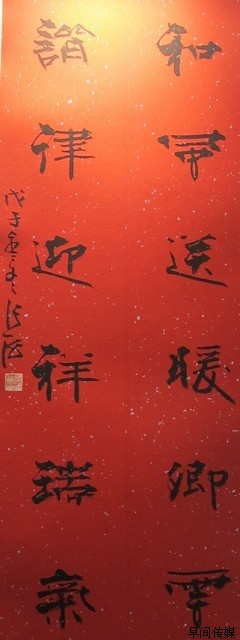 和送暖卿雲
諧律迎祥瑞氣
戊子
早间传媒